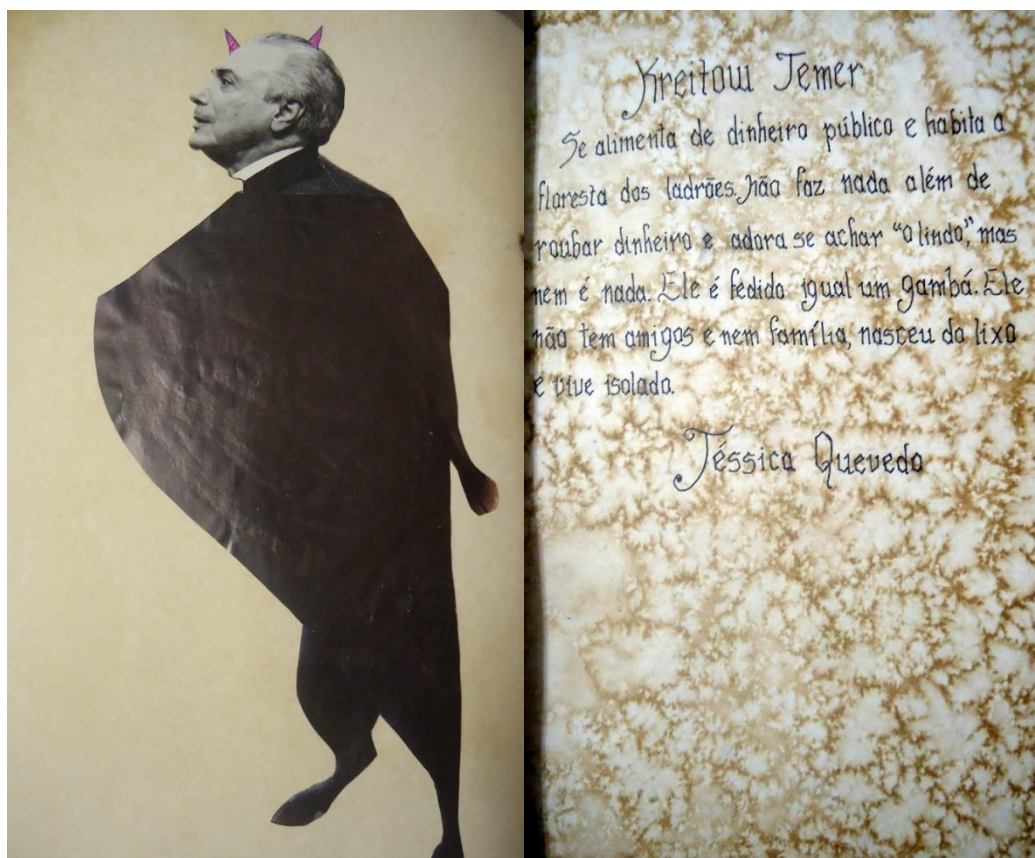 Kreitow Temer
Se alimenta de dinheiro público e habita a
floresta dos ladrões. Não faz nada além de
roubar dinheiro e adora se achar "o lindo", mas
nem é nada. Ele é fedido igual um gambá. Ele
não tem amigos e nem família, nasceu do lixo
e vive isolado.
Jéssica Quevedo